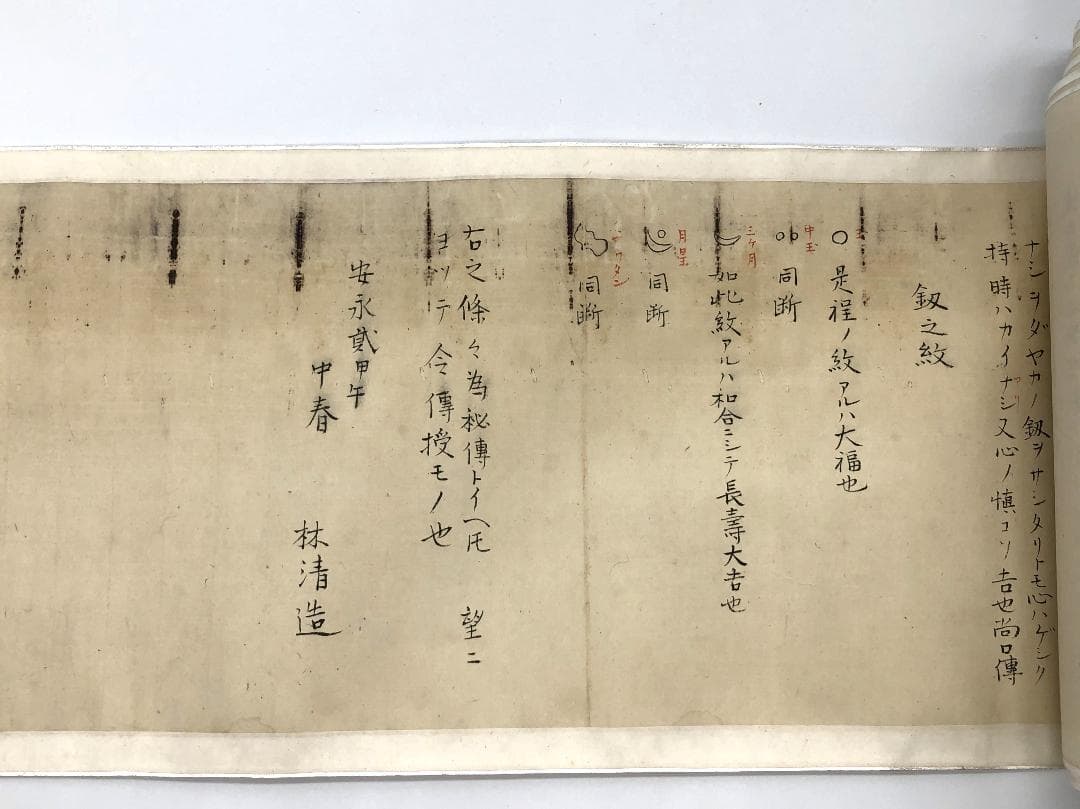 ナシヲダヤカノ釼ヲサシタリトモ心ハゲシク
持時ハカイナシ又心ノ慎コソ吉也尚口傳
釼之紋
玉
○是程ノ紋アルハ大福也
中玉
○○同断
三ケ月
如此紋アルハ和合ニシテ長壽大吉也
月星
同断
同断
右之條々為秘傳トイヘ𪜈望ニ
ヨッテ令傳授モノ也
安永貮甲午
中春
林清造